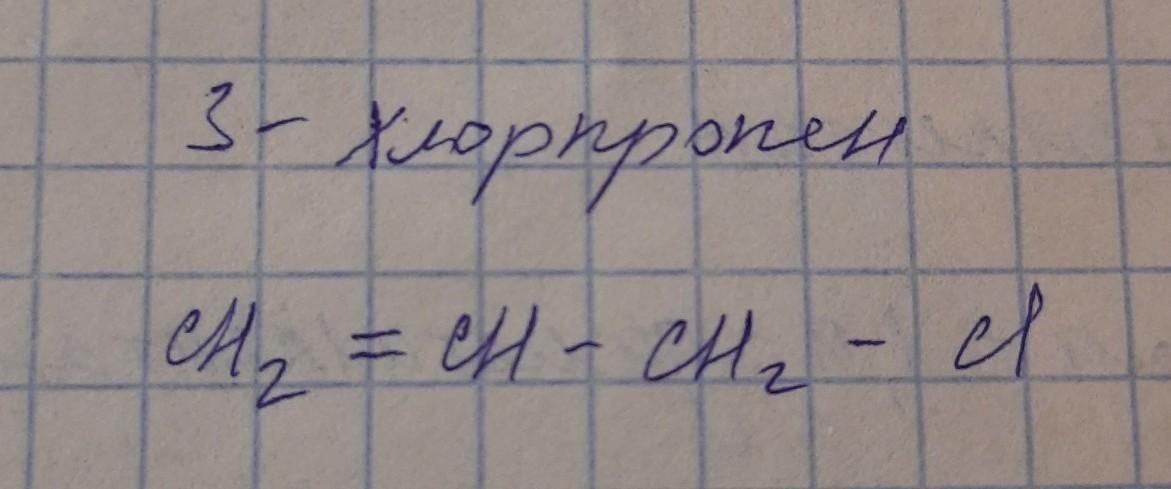 3- хлорпропен
CH₂ = CH - CH₂ - Cl